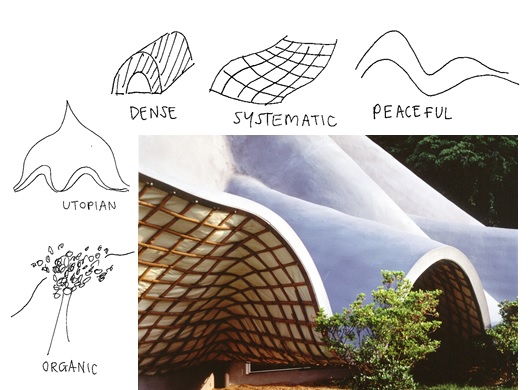 DENSE
SYSTEMATIC
PEACEFUL
UTOPIAN
ORGANIC